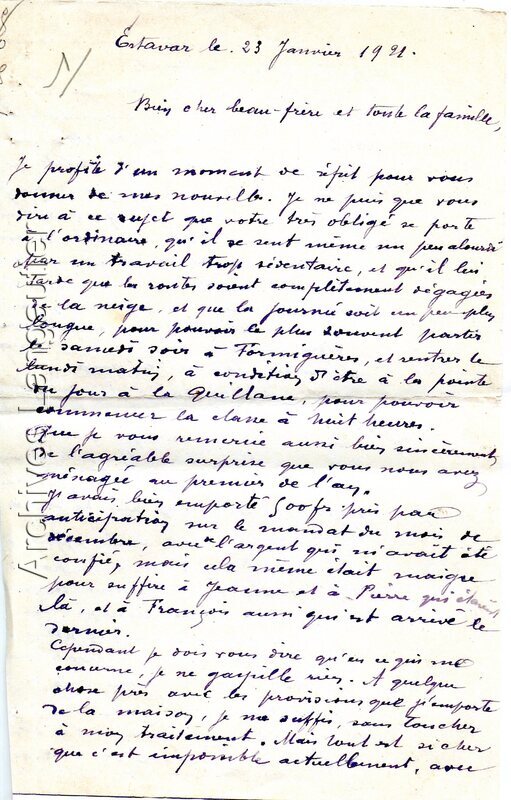 Estavar le 23 Janvier 1921.
Bien cher beau-frère et toute la famille,
Je profite d'un moment de répit pour vous
donner de mes nouvelles. Je ne puis que vous
dire à ce sujet que votre très obligé se porte
à l'ordinaire, qu'il se sent même un peu alourdi
par un travail trop sédentaire, et qu'il lui
tarde que les routes soient complètement dégagées
de la neige, et que la journée soit un peu plus
longue, pour pouvoir le plus souvent partir
le samedi soir à Formiguères, et rentrer le
lundi matin, à condition d'être à la pointe
du jour à la Quillane, pour pouvoir
commencer la classe à huit heures.
Que je vous remercie aussi bien sincèrement
de l'agréable surprise que vous nous avez
ménagée au premier de l'an.
J'avais bien emporté 500 fr pris par
anticipation sur le mandat du mois de
décembre, avec l'argent qui m'avait été
confié, mais cela même était maigre
pour suffire à Jeanne et à Pierre qui étaient
là, et à François aussi qui est arrivé le
dernier.
Cependant je dois vous dire qu'en ce qui me
concerne, je ne gaspille rien. A quelque
chose près avec les provisions que j'emporte
de la maison, je me suffis, sans toucher
à mon traitement. Mais tout est si cher
que c'est impossible actuellement, avec
Archives Larguier